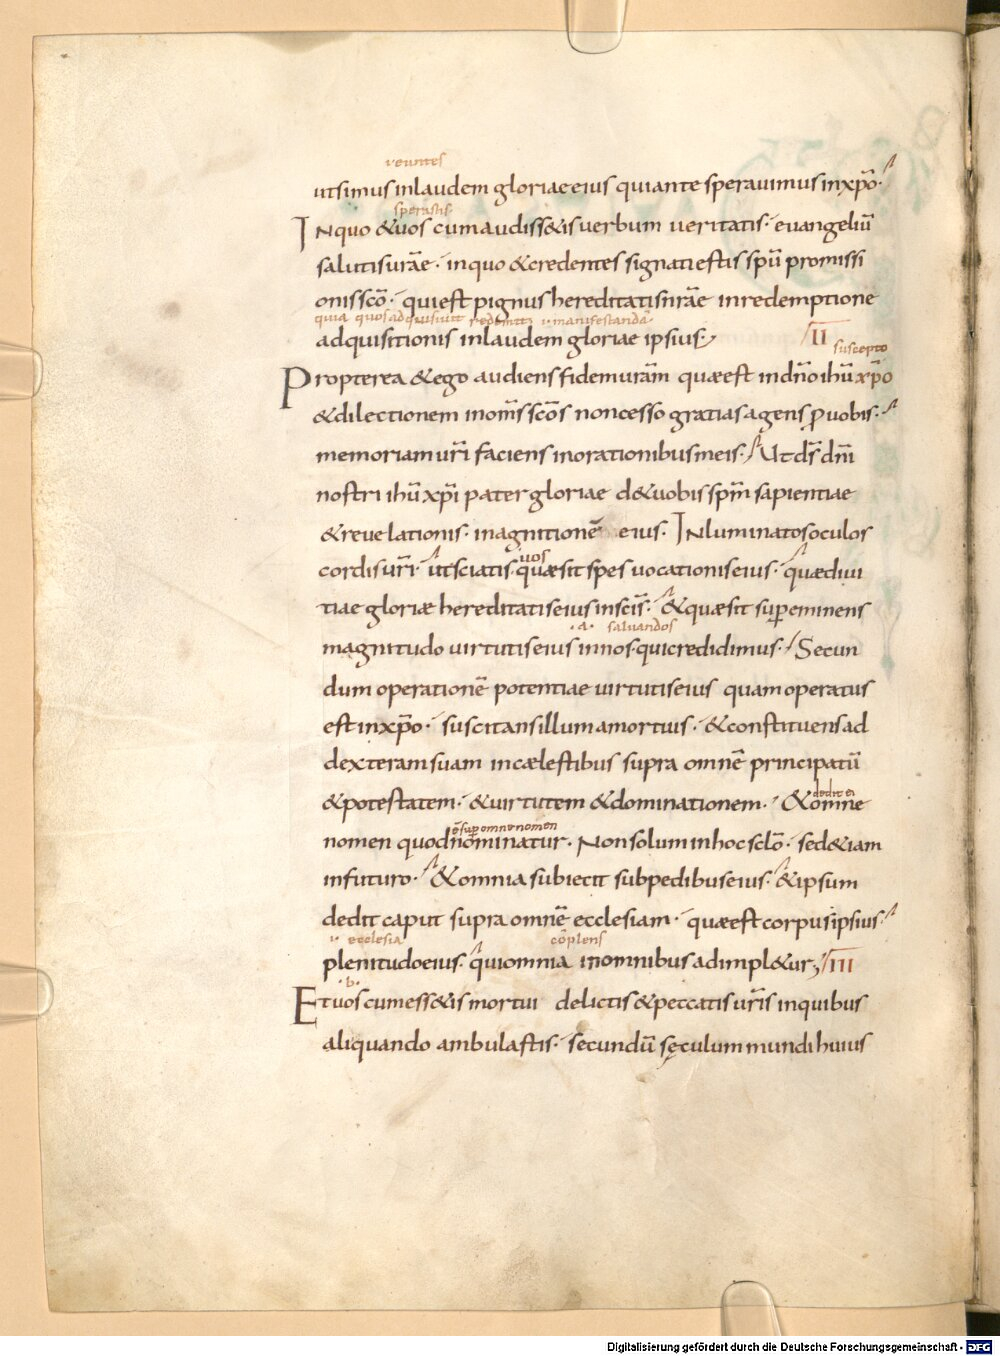 venites
utsimus inlaudem gloriae eius quiante speravimus inxp̄o·
sperastis·
INquo &uos cumaudiss&is uerbum ueritatis· euangeliū
salutis urāe· inquo &credentes signati estis spū promissi
onis scō· qui est pignus hereditatis nrāe inredemptione
quia quos adquisiuit redemit manifestandā·
adquisitionis inlaudem gloriae ipsius; II
suscepto
Propterea &ego audiens fidem urām quae est indn̄o ihū xp̄o
&dilectionem inom̄s scōs noncesso gratias agens ꝓuobis·
memoriam urī faciens inorationibus meis· Ut ds̄ dn̄i
nostri ihū xp̄i pater gloriae d&uobis spm̄ sapientiae
&reuelationis· inagnitionē eius· INluminatos oculos
uos
cordis urī· utsciatis· quae sit spes uocationis eius· quae diui
tiae gloriae hereditatis eius inscīs· &quae sit sup̄eminens
·a· saluandos
magnitudo uirtutis eius innos· quicredidimus· Secun
dum operationē potentiae uirtutis eius quam operatus
est inxp̄o· suscitans illum amortuis· &constituens ad
dexteram suam incaelestibus supra omnē principatū
dedit ei
&potestatem· &uirtutem &dominationem· &omne
ē sup̄ omne nomen
nomen quod nominatur· Nonsolum inhoc sclō· sed&iam
infuturo· &omnia subiecit subpedibus eius· &ipsum
dedit caput supra omnē ecclesiam· quae est corpus ipsius·
ecclesia cōplens
plenitudo eius· quiomnia inomnibus adimpl&ur; III
·b·
Et uos cumess&is mortui delictis &peccatis urīs inquibus
aliquando ambulastis· secundū sęculum mundi huius
Digitalisierung gefördert durch die Deutsche Forschungsgemeinschaft - DFG